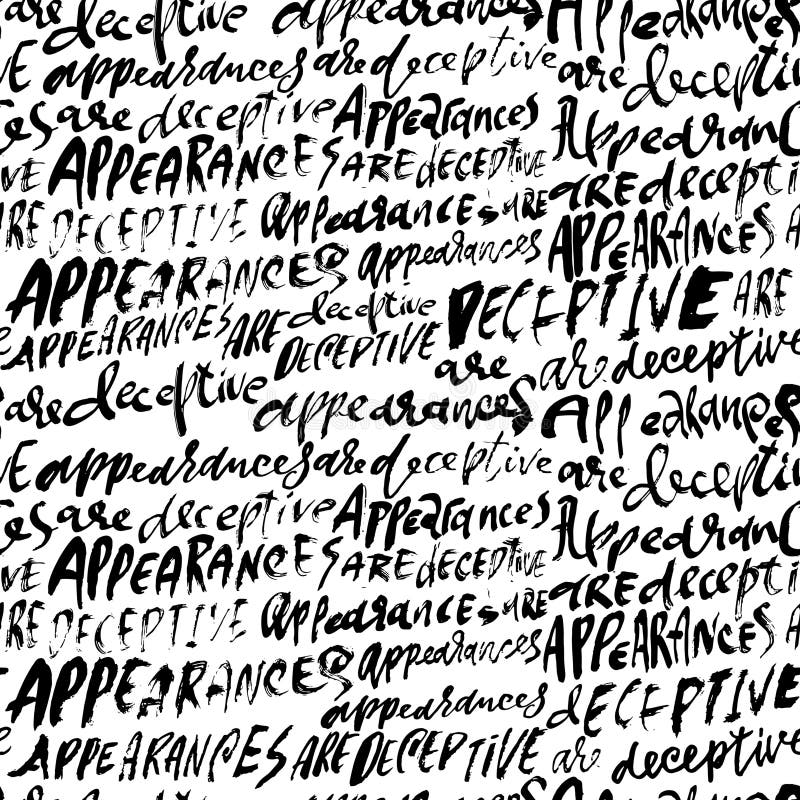 are deceptive appearances Appearances
E appearances are deceptive are deceptive
es are deceptive Appearances Appearanc
VE APPEARANCES ARE DECEPTIVE ARE decepti
ARE DECEPTIVE Appearances ARE APPEARANCES A
APPEARANCES appearances DECEPTIVE ARE
e APPEARANCES ARE deceptive DECEPTIVE are deceptive
are deceptive appearances are Appearances
E appearances are deceptive are deceptive
es are deceptive Appearances Appearanc
VE APPEARANCES ARE DECEPTIVE ARE decepti
ARE DECEPTIVE Appearances ARE APPEARANCES A
APPEARANCES appearances appearances dECEPTIVE
e APPEARANCES ARE DECEPTIVE are deceptive
are deceptive appearances